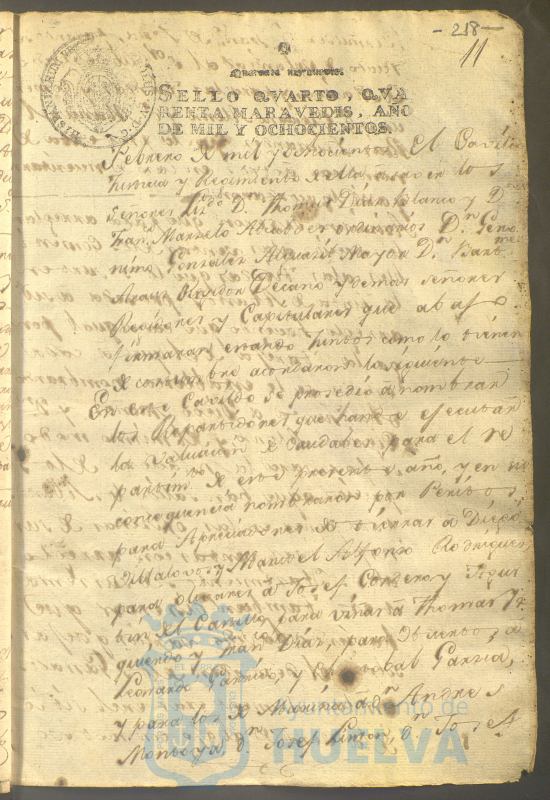 - 218 -
11
SELLO QVARTO, QVA
RENTA MARAVEDIS, AÑO
DE MIL Y OCHOCIENTOS.
Febrero de mil y ochocientos El Cavildo
Justicia y Regimiento de ella en los
Señores D. Thomas y D.
Fran.co Marmelo Alcaldes ordinarios D.n Gero
nimo Gonzalez Alguacil Mayor D.n
Regidor Decano y demas señores
Regidores y Capitulares que abajo
firmaran estando juntos como lo tienen
de costumbre acordaron lo siguiente
En este Cavildo se procedió a nombrar
los Repartidores que han de ejecutar
la valuacion de caudales para el re
partim.to de este presente año, y en su
consequencia nombraron por Peritos
para Apreciadores de tierras a Diego
Villalovos y Manuel Alfonso Rodriguez
para olivares a Josef Cordero y Agus
tin el Carrillo para viñas a Thomas Yz
quierdo y Juan Diaz, para
Leonardo Garrido y Cristobal Garcia,
y para los de Marina a D.n Andres
Montoya D.n Josef D.n Josef
Ayuntamiento de
HUELVA